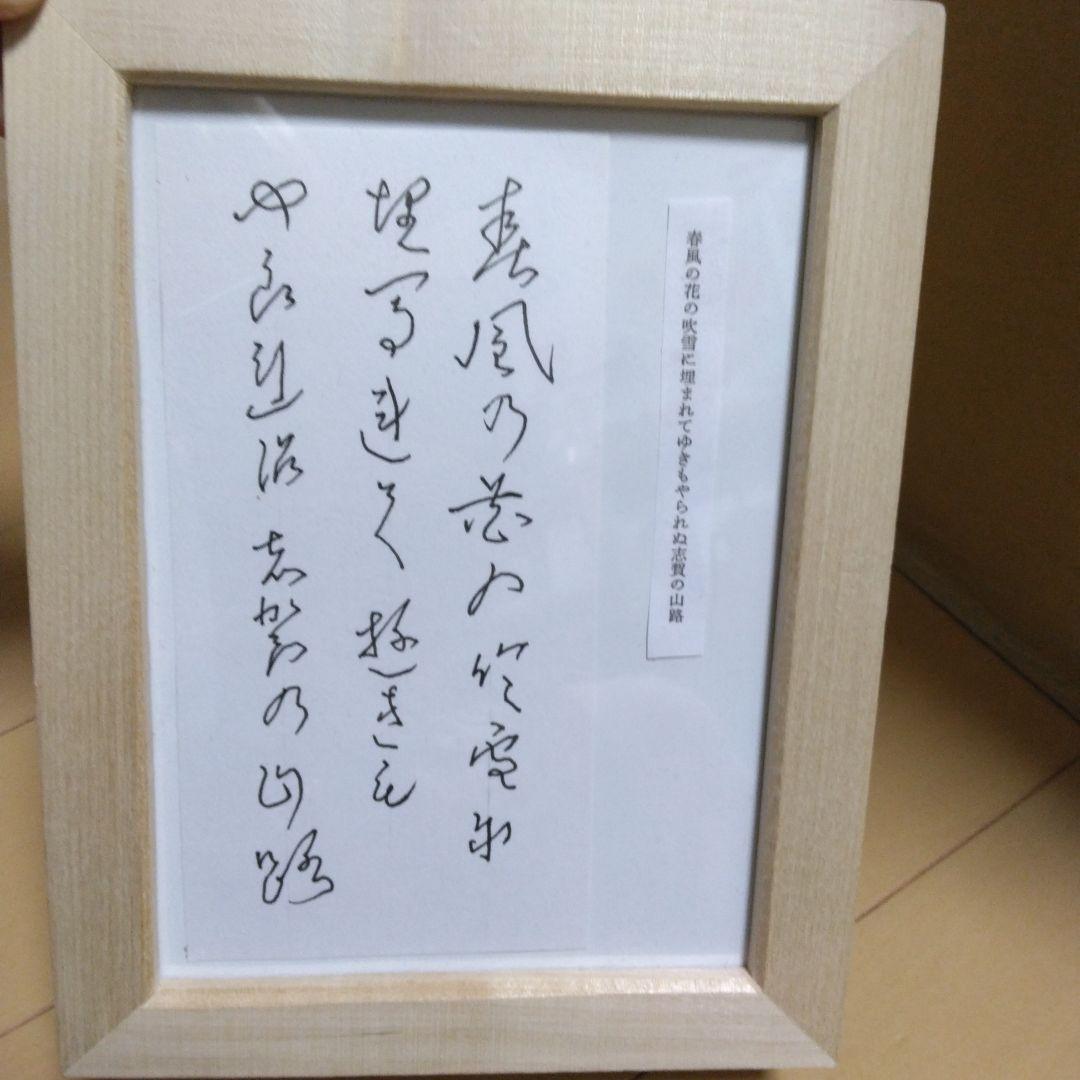 春風の花の吹雪に埋まれてゆきもやられぬ志賀の山路
春風乃花の吹雪尓
埋万連天遊きも
や良連沼志賀乃山路